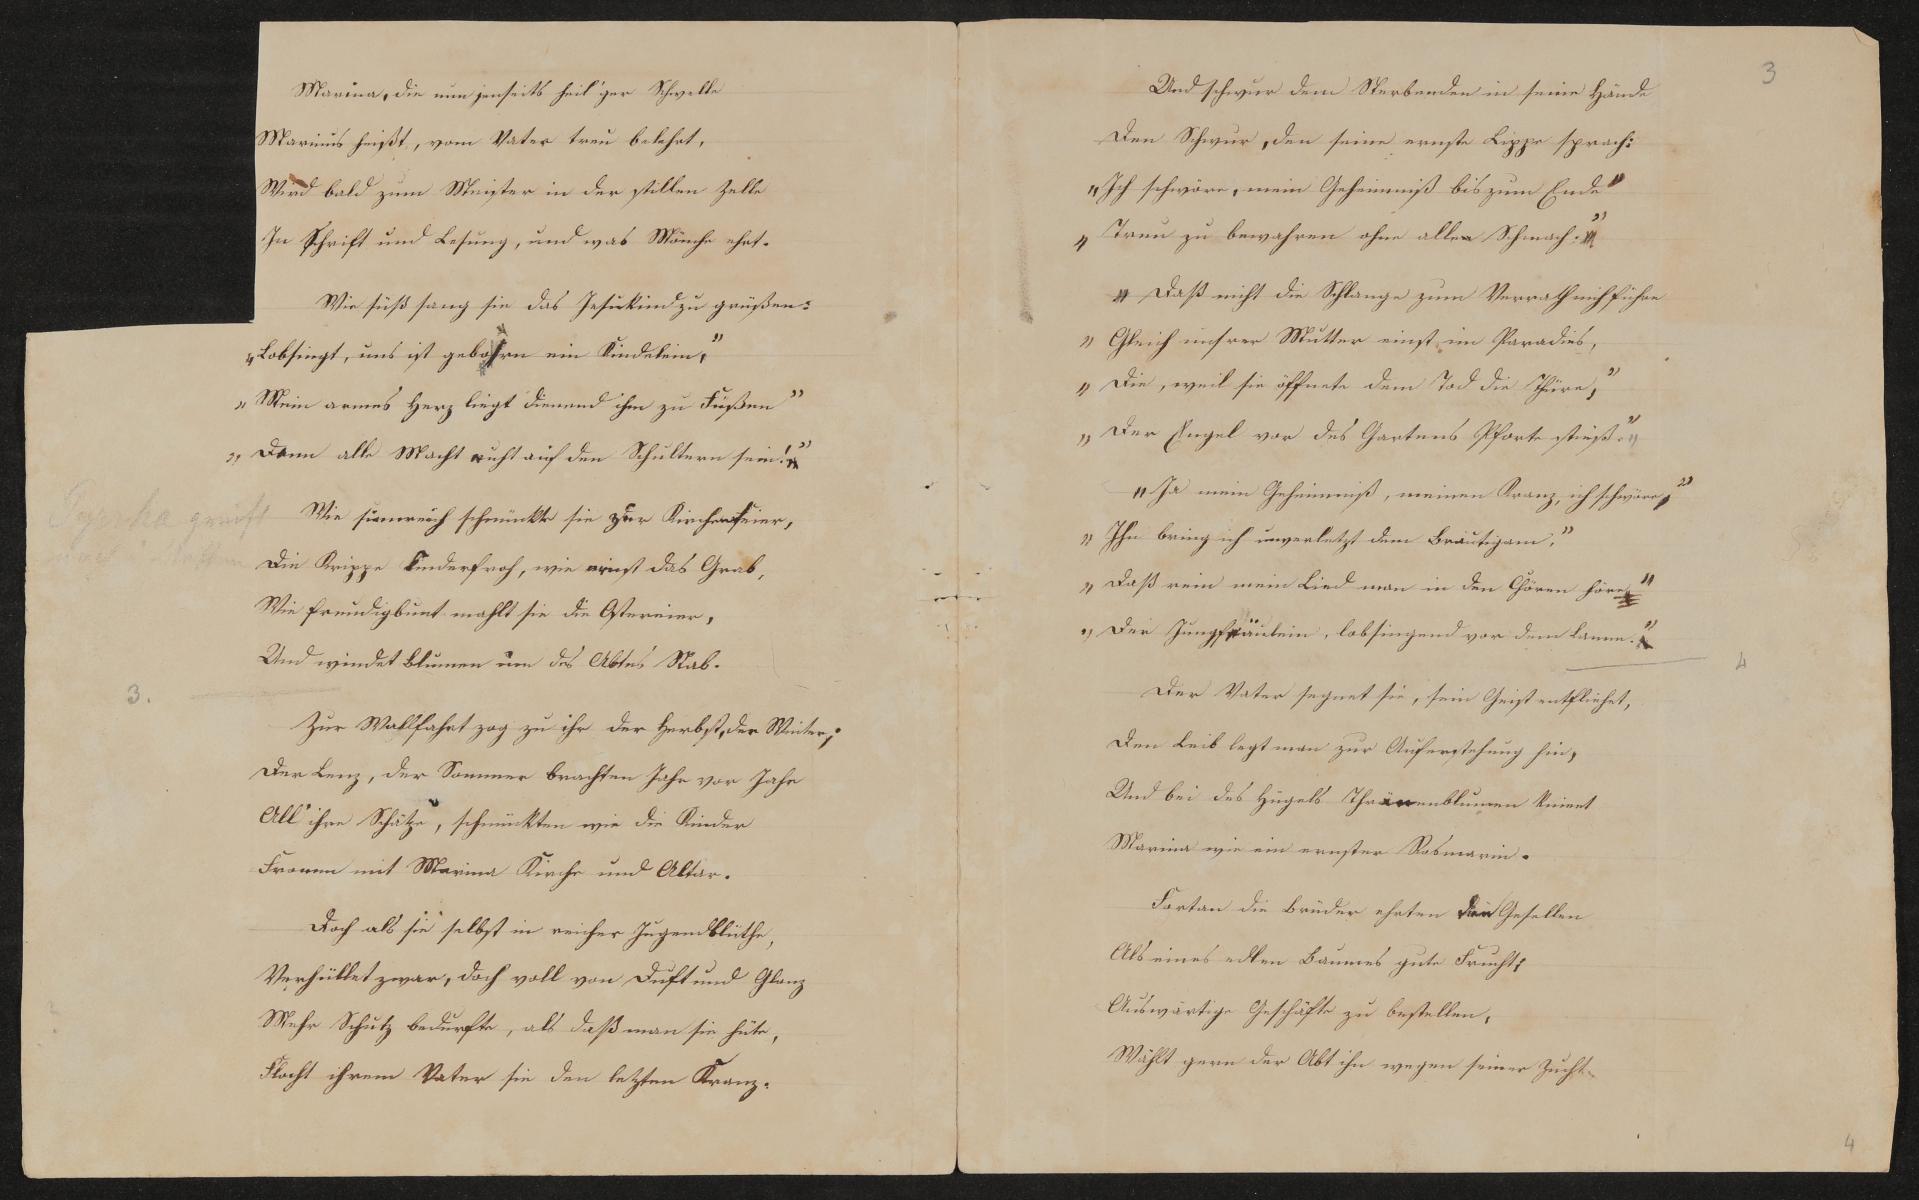 Marina, die nun jenseits heil'ger Schwelle
Marinus heißt, vom Vater treu belehrt,
Wird bald zum Meister in der stillen Zelle
In Schrift und Lesung, und was Mönche ehrt.
Wie süß sang sie das Jesukind zu grüßen:
„Lobsingt, uns ist gebohrn ein Kindelein,"
„Mein armes Herz liegt dienend ihm zu Füßen"
„Denn alle Macht ruht auf den Schultern sein!"
Wie sinnreich schmückte sie zur Kirchenfeier,
Die Krippe kinderfroh, wie ernst das Grab,
Wie freudigbunt mahlt sie die Ostereier,
Und windet Blumen um des Abtes Stab.
3.
Zur Wallfahrt zog zu ihr der Herbst, der Winter,
Der Lenz, der Sommer brachten Jahr vor Jahr
All' ihre Schätze, schmückten wie die Kinder
Fromm mit Marina Kirche und Altar.
Doch als sie selbst in reicher Jugendblüthe,
Verhüllet zwar, doch voll von Duft und Glanz
Mehr Schutz bedurfte, als daß man sie hüte,
Flocht ihrem Vater sie den letzten Kranz.
3
Und schwur dem Sterbenden in seine Hände
Den Schwur, den seine ernste Lippe sprach:
„Ich schwöre, mein Geheimniß bis zum Ende"
„Treu zu bewahren ohne alle Schmach."
„Daß nicht die Schlange zum Verrath mich führe
„Gleich unsrer Mutter einst im Paradies,
„Die, weil sie öffnete dem Tod die Thüre,"
„Der Engel vor des Gartens Pforte stieß."
„Ja mein Geheimniß, meinen Kranz, ich schwöre,"
„Ihn bring ich unverletzt dem Bräutigam,"
„Daß rein mein Lied man in den Chören höre"
„Der Jungfräulein, lobsingend vor dem Lamm."
4
Der Vater segnet sie, sein Geist entfliehet,
Den Leib legt man zur Auferstehung hin,
Und bei des Hügels Thränenblumen knieet
Marina wie ein ernster Rosmarin.
Fortan die Brüder ehrten den Gesellen
Als eines edlen Baumes gute Frucht;
Auswärtige Geschäfte zu bestellen,
Wählt gern der Abt ihn wegen seiner Zucht.
4